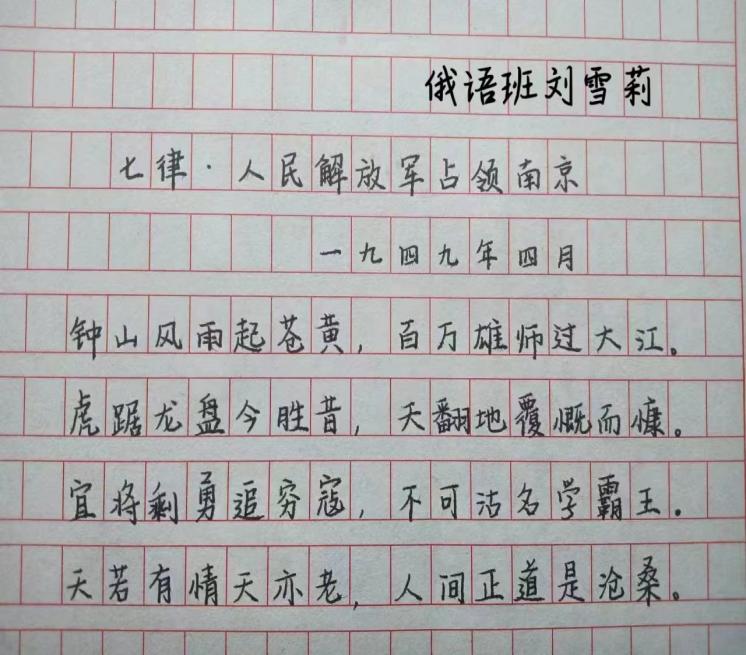 俄语班刘雪莉
七律·人民解放军占领南京
一九四九年四月
钟山风雨起苍黄，百万雄师过大江。
虎踞龙盘今胜昔，天翻地覆慨而慷。
宜将剩勇追穷寇，不可沽名学霸王。
天若有情天亦老，人间正道是沧桑。